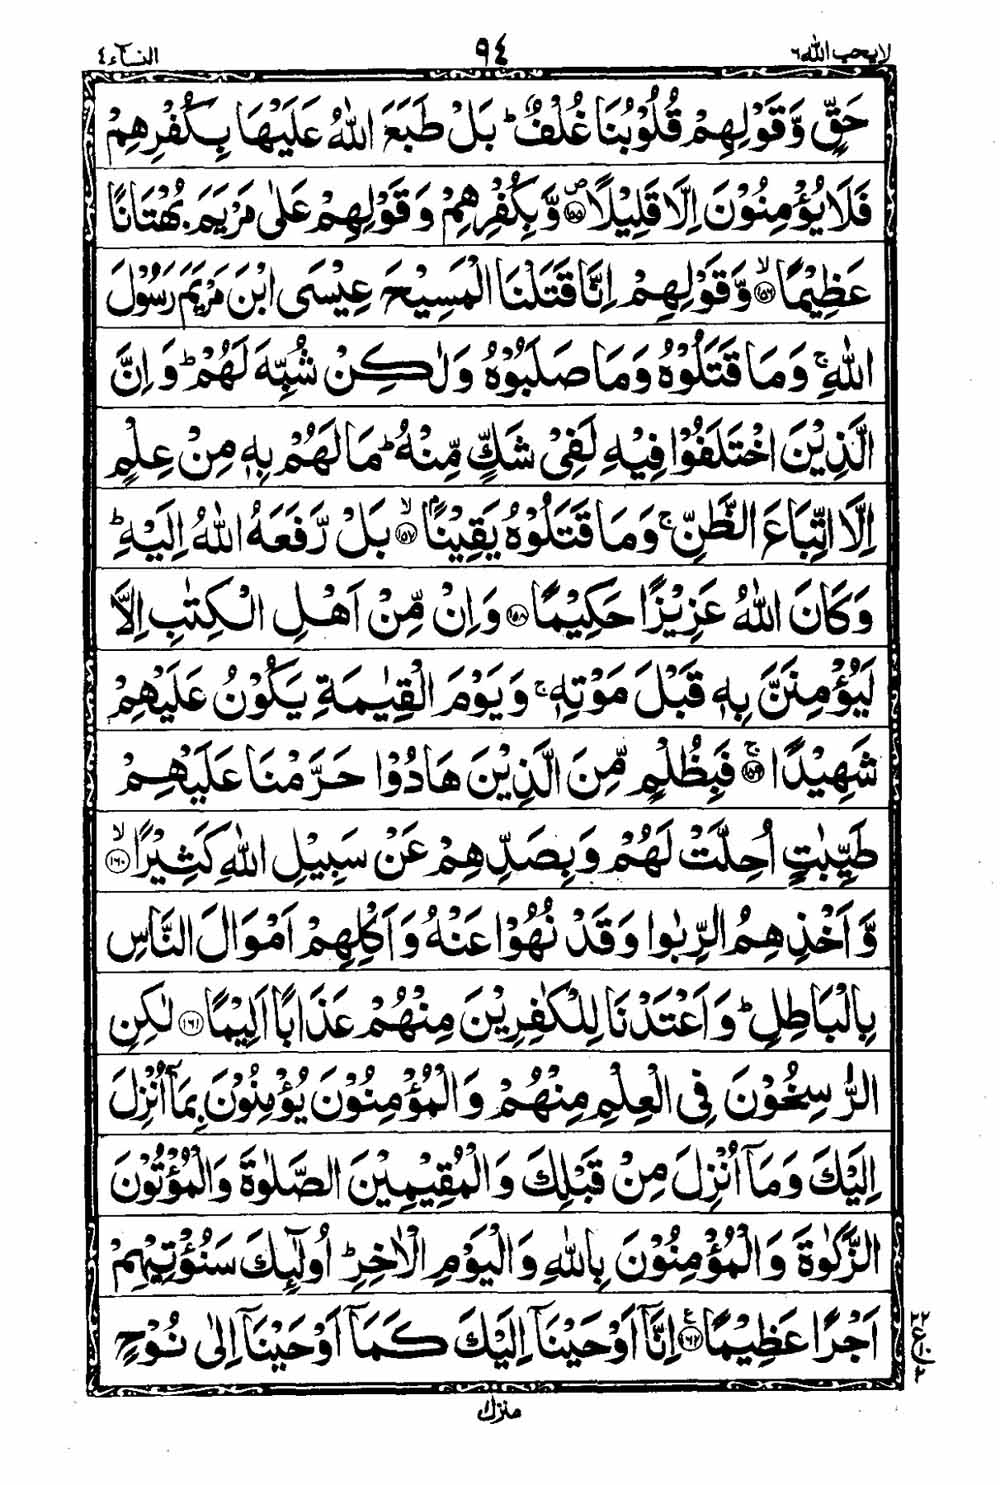 لا یحب الله ٦ ٩٤ النسآء ٤
حَقٍّ وَّقَوْلِهِمْ قُلُوْبُنَا غُلْفٌ ؕ بَلْ طَبَعَ اللّٰهُ عَلَیْهَا بِكُفْرِهِمْ
فَلَا یُؤْمِنُوْنَ اِلَّا قَلِیْلًا ۪﴿۱۵۵﴾ وَّبِكُفْرِهِمْ وَقَوْلِهِمْ عَلٰی مَرْیَمَ بُهْتَانًا
عَظِیْمًا ۙ﴿۱۵۶﴾ وَّقَوْلِهِمْ اِنَّا قَتَلْنَا الْمَسِیْحَ عِیْسَی ابْنَ مَرْیَمَ رَسُوْلَ
اللّٰهِ ۚ وَمَا قَتَلُوْهُ وَمَا صَلَبُوْهُ وَلٰكِنْ شُبِّهَ لَهُمْ ؕ وَاِنَّ
الَّذِیْنَ اخْتَلَفُوْا فِیْهِ لَفِیْ شَكٍّ مِّنْهُ ؕ مَا لَهُمْ بِهٖ مِنْ عِلْمٍ
اِلَّا اتِّبَاعَ الظَّنِّ ۚ وَمَا قَتَلُوْهُ یَقِیْنًۢا ۙ﴿۱۵۷﴾ بَلْ رَّفَعَهُ اللّٰهُ اِلَیْهِ ؕ
وَكَانَ اللّٰهُ عَزِیْزًا حَكِیْمًا ﴿۱۵۸﴾ وَاِنْ مِّنْ اَهْلِ الْكِتٰبِ اِلَّا
لَیُؤْمِنَنَّ بِهٖ قَبْلَ مَوْتِهٖ ۚ وَیَوْمَ الْقِیٰمَةِ یَكُوْنُ عَلَیْهِمْ
شَهِیْدًا ۚ﴿۱۵۹﴾ فَبِظُلْمٍ مِّنَ الَّذِیْنَ هَادُوْا حَرَّمْنَا عَلَیْهِمْ
طَیِّبٰتٍ اُحِلَّتْ لَهُمْ وَبِصَدِّهِمْ عَنْ سَبِیْلِ اللّٰهِ كَثِیْرًا ۙ﴿۱۶۰﴾
وَّاَخْذِهِمُ الرِّبٰوا وَقَدْ نُهُوْا عَنْهُ وَاَكْلِهِمْ اَمْوَالَ النَّاسِ
بِالْبَاطِلِ ؕ وَاَعْتَدْنَا لِلْكٰفِرِیْنَ مِنْهُمْ عَذَابًا اَلِیْمًا ﴿۱۶۱﴾ لٰكِنِ
الرّٰسِخُوْنَ فِی الْعِلْمِ مِنْهُمْ وَالْمُؤْمِنُوْنَ یُؤْمِنُوْنَ بِمَاۤ اُنْزِلَ
اِلَیْكَ وَمَاۤ اُنْزِلَ مِنْ قَبْلِكَ وَالْمُقِیْمِیْنَ الصَّلٰوةَ وَالْمُؤْتُوْنَ
الزَّكٰوةَ وَالْمُؤْمِنُوْنَ بِاللّٰهِ وَالْیَوْمِ الْاٰخِرِ ؕ اُولٰٓئِكَ سَنُؤْتِیْهِمْ
اَجْرًا عَظِیْمًا ۠﴿۱۶۲﴾ اِنَّاۤ اَوْحَیْنَاۤ اِلَیْكَ كَمَاۤ اَوْحَیْنَاۤ اِلٰی نُوْحٍ
منزل ١